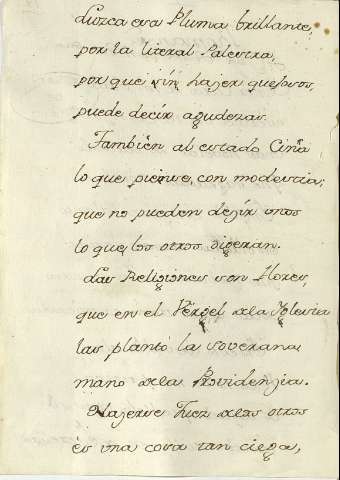 Luzca esa Pluma brillante,
por la literal Palestra,
por que sin hazer quexosos,
puede decir agudezas.
Tambien al estado
lo que piense, con modestia,
que no pueden dezir unos
lo que los otros digeran.
Las Religiones son flores,
que en el Vergel dela Yglesia
las plantó la soverana
mano dela Providenzia.
Hazerse Juez delos otros
es una cosa tan ciega,